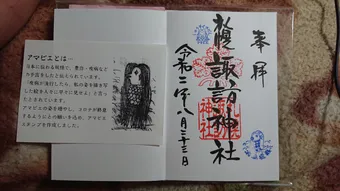 アマビエとは―
日本に伝わる妖怪で、豊作・疫病など
の予言をしたと伝えられています。
「疫病が流行したら、私の姿を描き写
した絵を人々に早々に見せよ」と言っ
たとされています。
アマビエの姿を映し、コロナが終息
するようにとの願いを込め、アマビエ
スタンプを作成しました。
奉拝
諏訪神社
令和二年八月二十三日